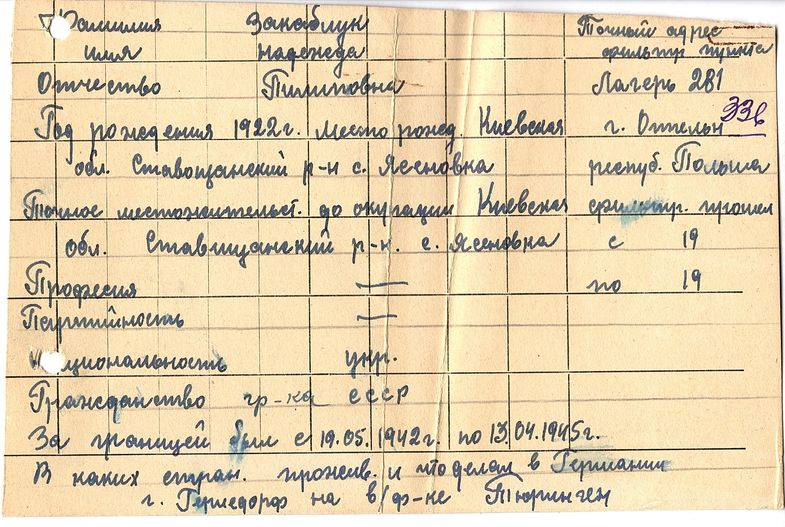 Фамилия Закаблук Точный адрес
имя Надежда фильтр. пункта
Отчество Пилиповна Лагерь 281
Год рождения 1922г. Место рожд. Киевская г. Оппельн 33в
обл. Ставощанский р-н с. Ясеновка респуб. Польша
Точное местожительст. до окупации Киевская фильтр. прошел
обл. Ставищанский р-н. с. Ясеновка с 19
Професия — по 19
Партийность —
Национальность укр.
Гражданство гр-ка СССР
За границей был с 19.05.1942г. по 13.04.1945г.
В каких стран. прожив. и что делал в Германии
г. Гермсдорф на в/ф-ке Тюринген